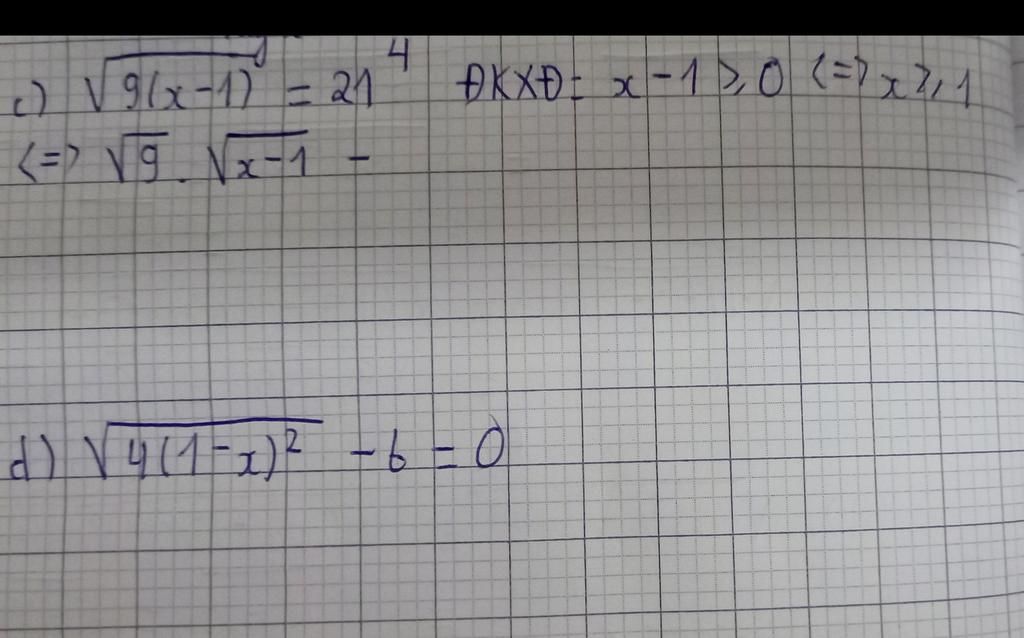 c) √9(x-1) = 21 4 ĐKXĐ: x - 1 ⩾ 0 <=> x ⩾ 1
<=> √9 . √x-1 -
d) √4(1-x)² - 6 = 0